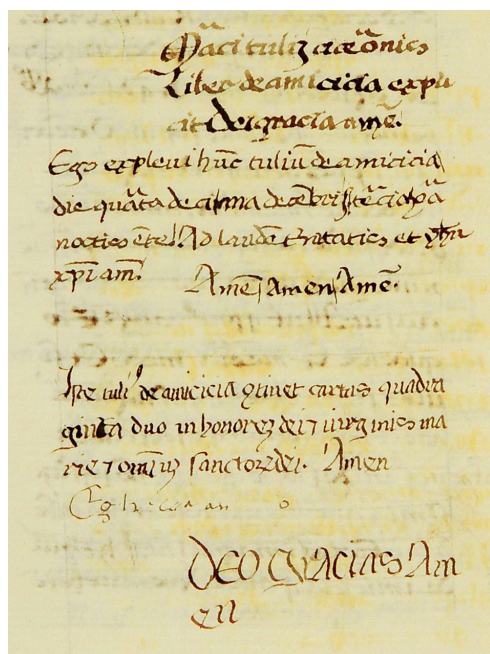 M̄aci tulij cic̄onies
Liber de amicicia expli
cit Dei gracia am̄e.
Ego explevi hūc tuliū de amicicia
die quārta decima decēbris
noctis Ad laudē trinitatis et
xp̄i am̄.
Amē, Amen, Amē.
Iste tuliꝰ de amicicia ꝯtinet cartas quadra
ginta duo in honorez dei ⁊ virginies ma
rie ⁊ omniuz sanctorz dei. Amen
DEO GRACIAS Am
en